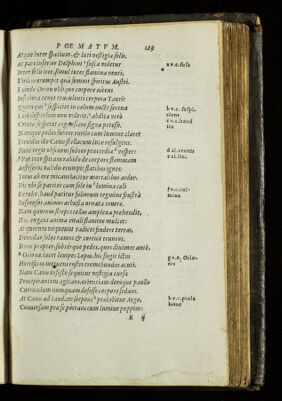 POEMATVM. 129
Atque inter spatium, & laeti vestigia solis.
At pars inferior Delphini fusca videtur
Inter solis iter, simul inter flamina venti,
Viribus erumpit quà summi spiritus Austri.
Exinde Orion obliquo corpore nitens
Inferiora tenet truculenti corpora Tauri:
Quem qui suspiciens in caelum nocte serena
Late dispersum non viderit,
Cetera se speret cognoscere signa potesse.
Namque pedes subter rutilo cum lumine claret
Fervidus ille Canis stellarum luce refulgens.
Hunc tegit obscurus subter praecordia vesper:
Vero toto spirans rabido de corpore flammam
Aestiferos validis erumpit flatibus ignes:
Totus ab ore micans iaculatur mortalibus ardor.
Hic ubi se pariter cum sole in lumina caeli
Extulit, haud patitur foliorum tegmine frustra
Suspensos animos arbusta ornata tenere.
Nam quorum stirpes tellus amplexa prehendit,
Haec augens anima vitali flamine mulcet:
At quorum nequeunt radices findere terras,
Denudat foliis ramos & cortice truncos.
Hunc propter, subterque pedes, quos diximus ante,
Orione iacet levipes Lepus. hic fugit ictus
Horrificos metuens rostri tremebundus acuti.
Nam Canis infesto sequitur vestigia cursu
Praecipitantem agitans, oriens iam denique paullo
Curriculum nunquam defesso corpore sedans.
At Canis ad caudam serpens prolabitur Argo,
Conversam prae se portans cum lumine puppim:
R ij
a v.c. fusa
b v.c. suspiciens
d al. venter
g v.c. Orionis
h v.c. prolabitur